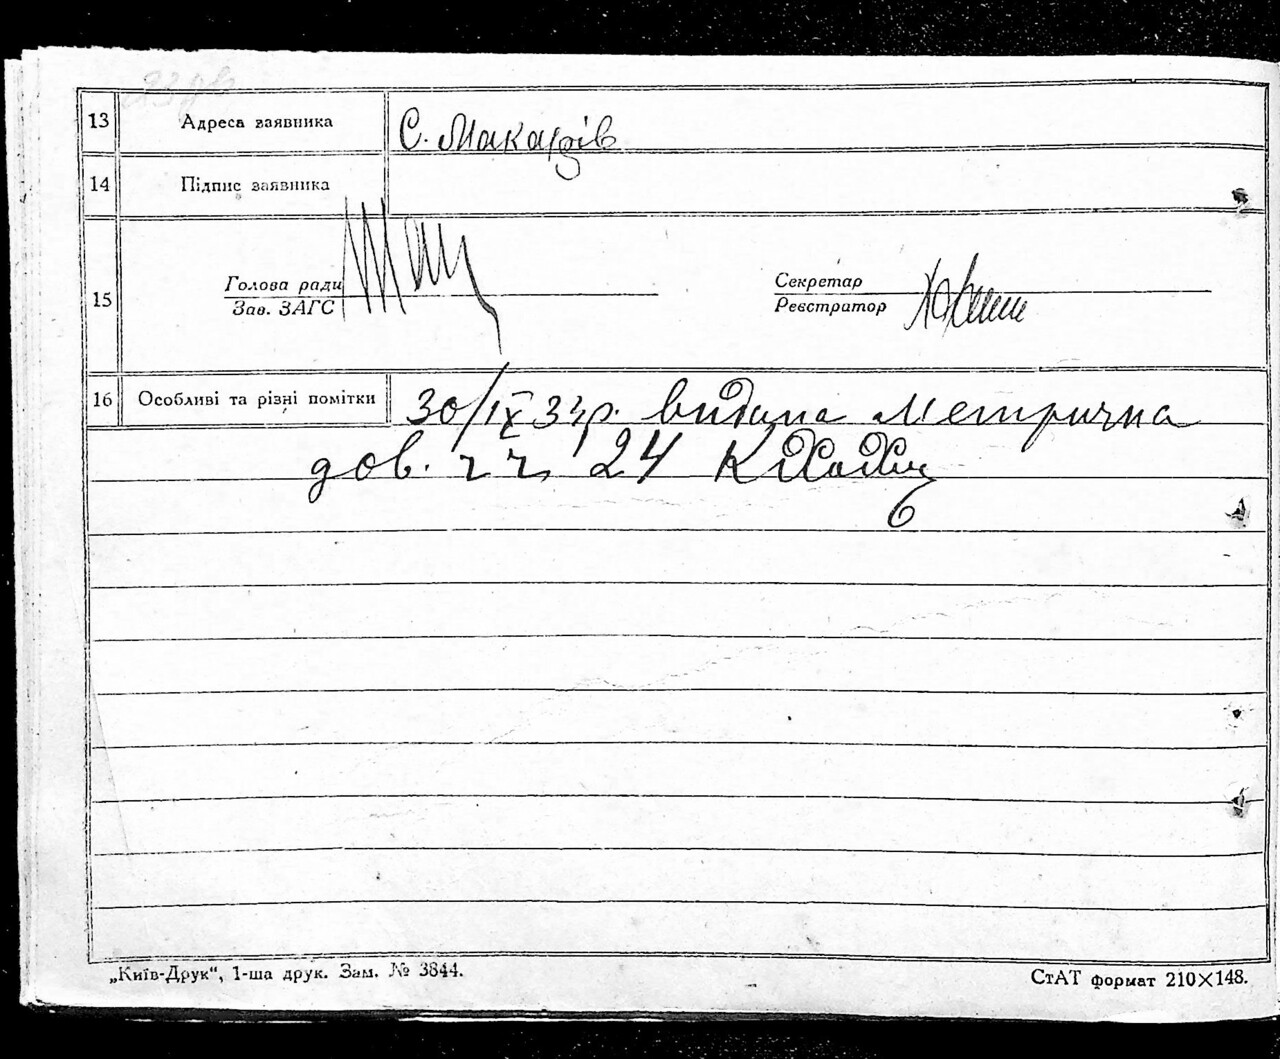 13 Адреса заявника С. Макарів
14 Підпис заявника
15 Голова ради Секретар
Зав. ЗАГС Реєстратор
16 Особливі та різні помітки 30/IX 33р. видана метрична
дов. 24
„Київ-Друк“, 1-ша друк. Зам. № 3844. СтАТ формат 210×148.